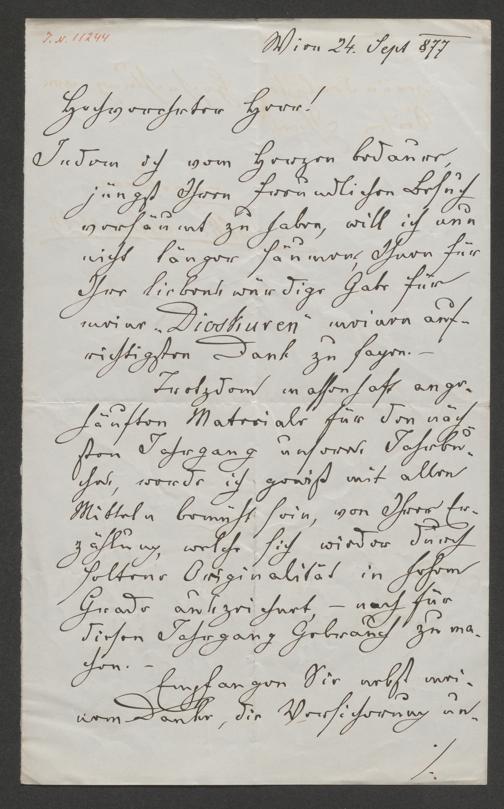 J. N. 11244
Wien 24. Sept 877
Hochverehrter Herr!
Indem ich vom Herzen bedaure,
jüngst Ihren freundlichen Besuch
versäumt zu haben, will ich nun
nicht länger säumen, Ihnen für
Ihre liebenswürdige Gabe für
meine „Dioskuren“ meinen auf-
richtigsten Dank zu sagen. –
Trotzdem massenhaft ange-
häuften Materials für den näch-
sten Jahrgang unseres Jahrbu-
ches, werde ich gewiß mit allen
Mitteln bemüht sein, von Ihrer Er-
zählung, welche sich wieder durch
seltene Originalität in hohem
Grade auszeichnet, – noch für
diesen Jahrgang Gebrauch zu ma-
chen. –
Empfangen Sie nebst mei-
nem Danke, die Versicherung un-
./.